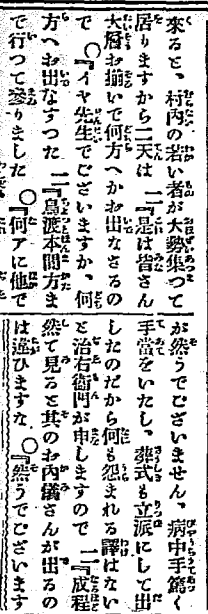 来ると、村内の若い者が大勢集つて
居りますから二天は 二『是は皆さん
大層お揃いで何方へかお出なさるの
で 〇『イヤ先生でございますか、何
方へお出なすつた 二『鳥渡本間方ま
で行つて參りました 〇『何アに他で
が然うでございません、病中手篤く
手當をいたし、葬式も立派にして出
したのだから何も怨まれる譯はない
と治右衞門が申しますので 二『成程
然て見ると其のお内儀さんが出るの
は違ひますな 〇『然うでございます